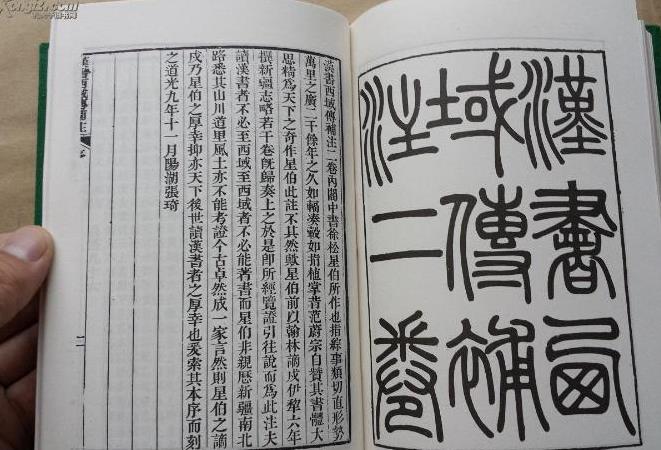 漢書西
域傳補
注二卷
漢書西域傳補注二卷內閣中書徐松星伯所作也指綜事類切直形勢
萬里之廣二千餘年之久如輻湊轂如指植掌昔范蔚宗自贊其書體大
思精爲天下之奇作星伯此注不其然歟星伯前以翰林謫戍伊犂六年
撰新疆志略若干卷旣歸奏上之於是卽所經覽證引往說而爲此注夫
讀漢書者不必至西域至西域者不必能著書而星伯非親歷新疆南北
路悉其山川道里風土亦不能考證今古卓然成一家言然則星伯之謫
戍乃星伯之厚幸抑亦天下後世讀漢書者之厚幸也爰索其本序而刻
之道光九年十一月陽湖張琦
漢書西域傳補注 序
二